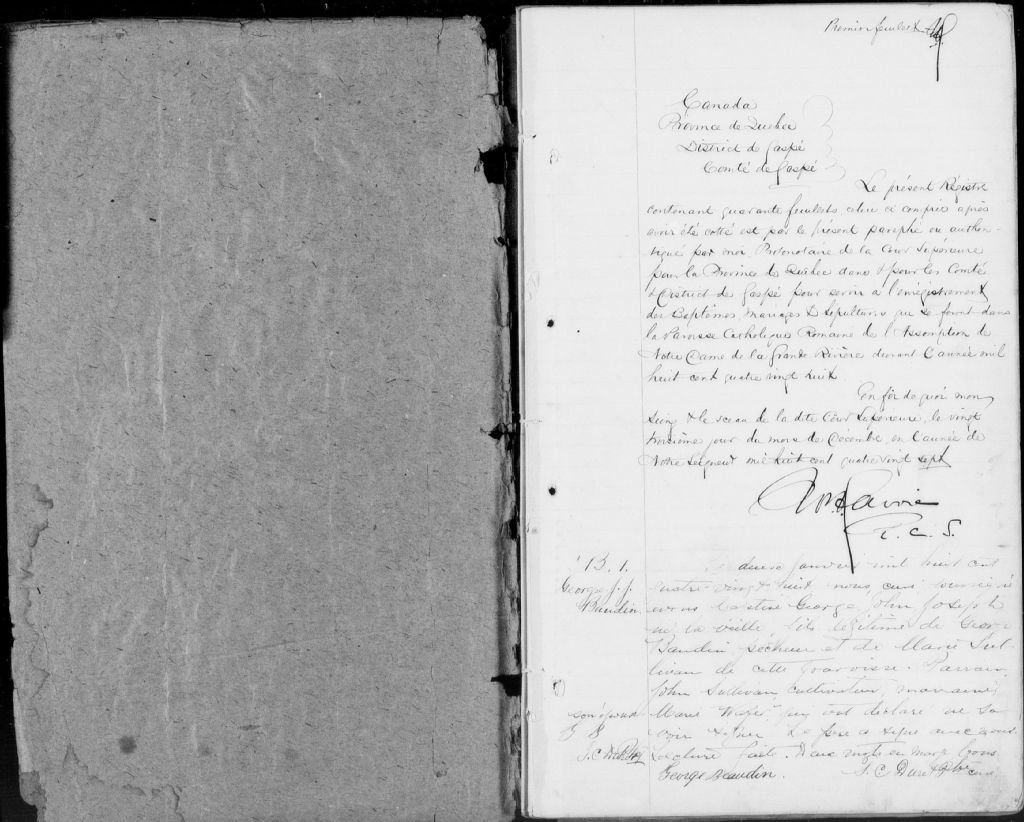 Premier feuillet
Canada
Province de Québec
District de Gaspé
Comté de Gaspé
Le présent Régistre
contenant quarante feuillets, celui ci compris après
avoir été cotté est par le présent paraphé ou authen-
tiqué par moi, Protonotaire de la Cour Supérieure
pour la Province de Québec dans & pour les Comté
& District de Gaspé pour servir a l'enrégistrement
des Baptêmes, Mariages & Sépultures qui se feront dans
la Paroisse Catholique Romaine de l'Assomption de
Notre Dame de la Grande Rivière durant l'année mil
huit cent quatre vingt huit.
En foi de quoi mon
Seing & le sceau de la dite Cour Supérieure, le vingt
troisième jour du mois de Décembre, en l'année de
Notre Seigneur mil huit cent quatre vingt sept
P. C. S.
B. 1.
George J. J.
Baudin
Le deux janvier mil huit cent
quatre-vingt huit, nous, curé, soussigné
avons baptisé George John Joseph
né la veille, fils légitime de George
Baudin pêcheur et de Marie Sul-
livan de cette paroisse. Parrain,
John Sullivan, cultivateur, marraine,
Marie qui ont déclaré ne sa-
voir signer. Le père a signé avec nous.
Lecture faite. Deux mots en marge bons.
son épouse
G B
J. C. D. Ptre
George Beaudin.
J. C. Duret Ptre curé